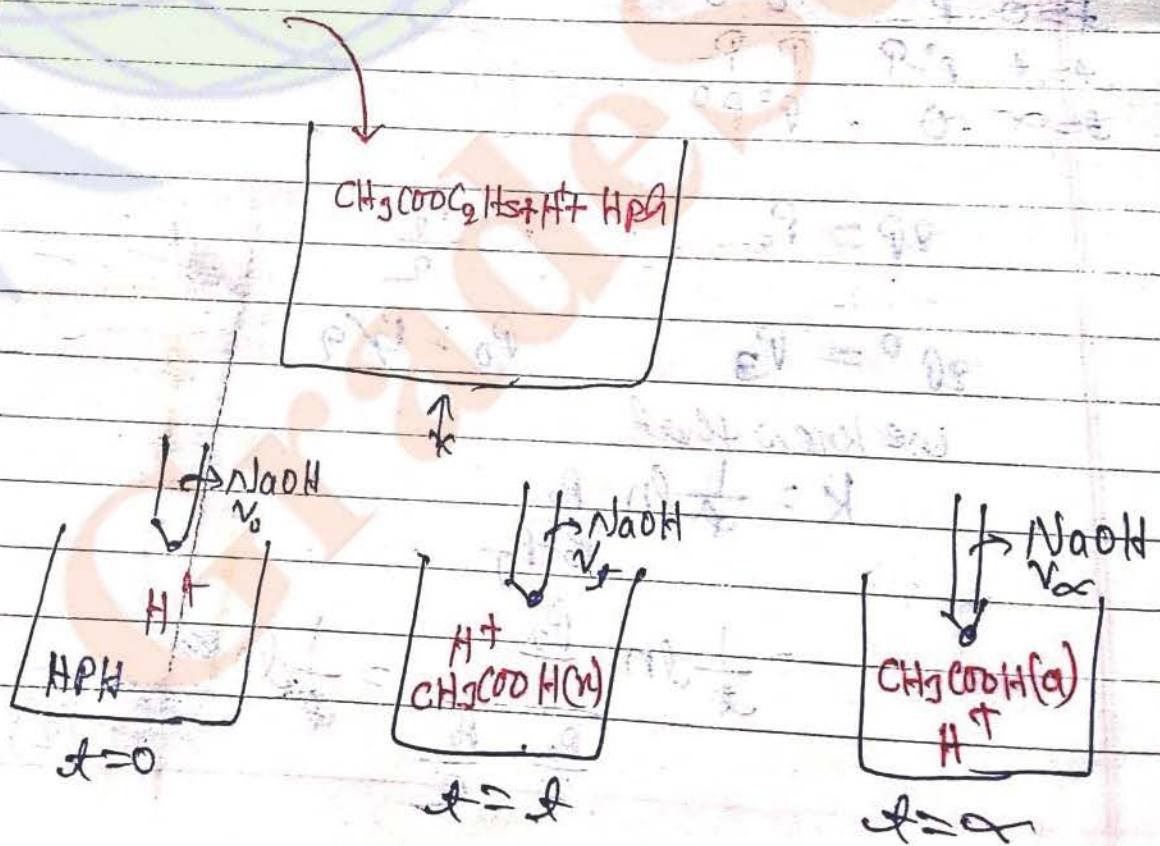 CH3COOC2H5+H++ HPh
K
NaOH
V0
H+
HPH
t=0
NaOH
Vt
H+
CH3COOH(x)
t=t
NaOH
V∝
CH3COOH(a)
H+
t=∝